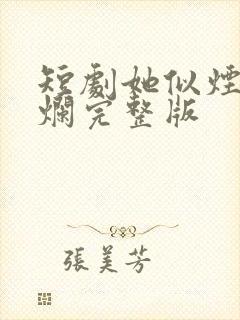 短劇她似煙
爛完整版
張美芳